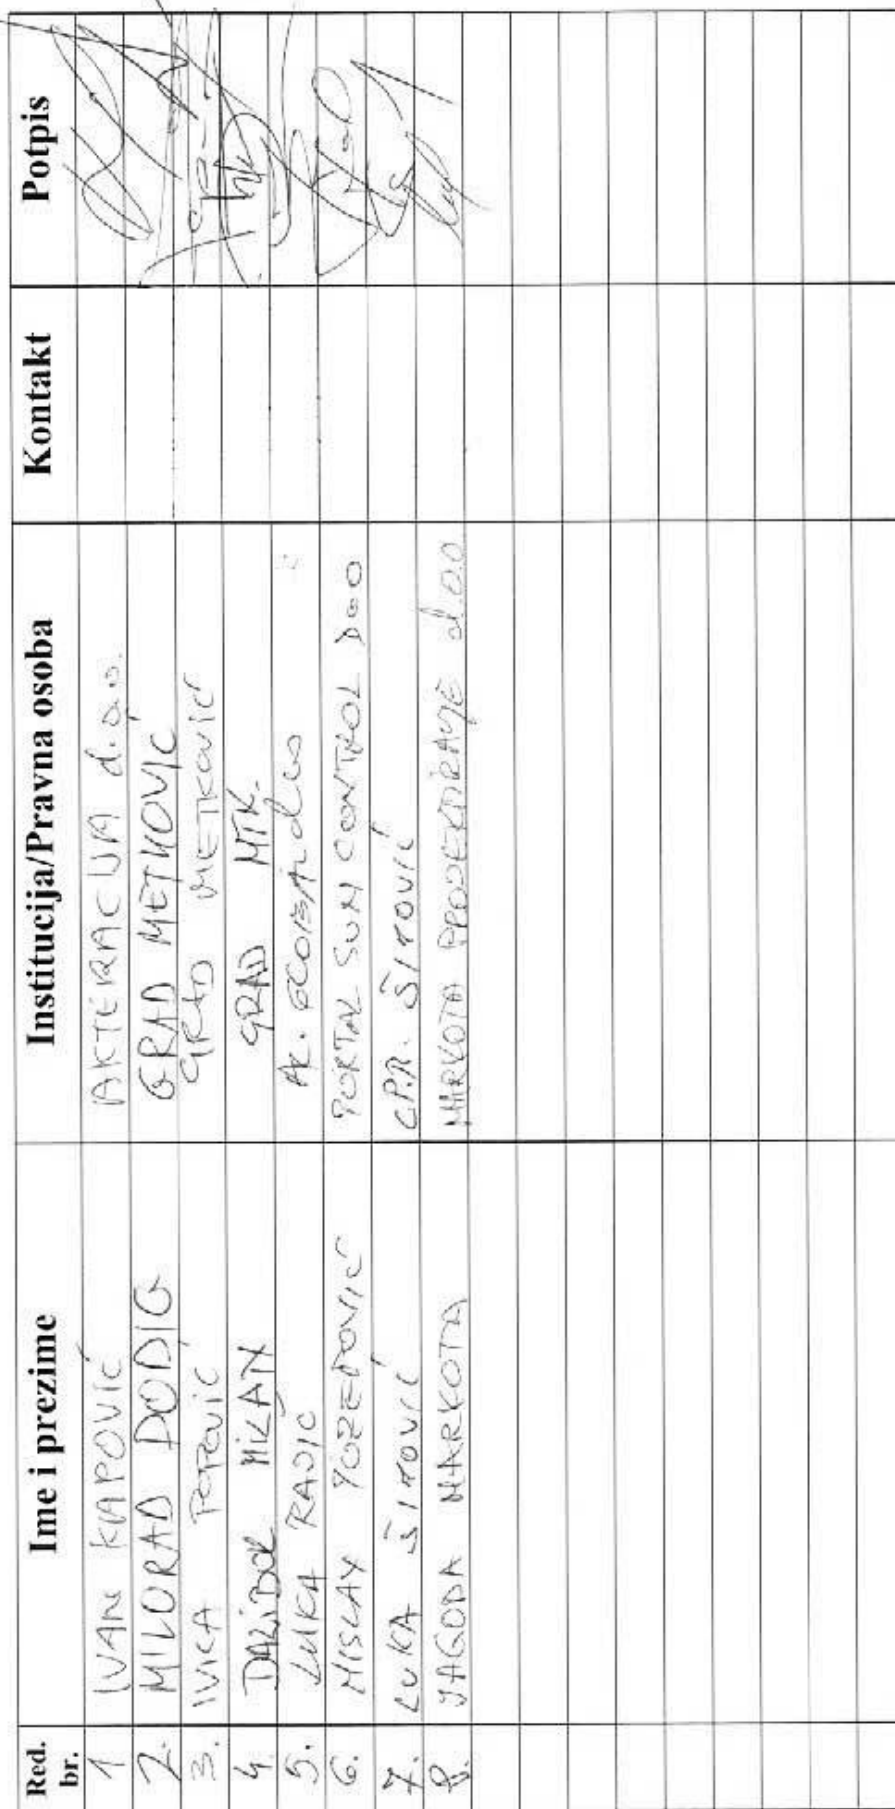 Red. br. Ime i prezime Institucija/Pravna osoba Kontakt Potpis
1 IVAN KAPOVIĆ AKTERACIJA d.o.o.
2. MILORAD DODIG GRAD METKOVIĆ
3. IVICA POPOVIĆ GRAD METKOVIĆ
4. DALIBOR MILAN GRAD MTK.
5. LUKA RADIC GLOBAL doo
6. MISLAV JOZEPOVIĆ PORTAL SUN CONTROL DOO
7. LUKA ŠIMOVIĆ ŠIMOVIĆ
8. JAGODA MARKOTA MARKOTA PROJEKTIRANJE d.o.o